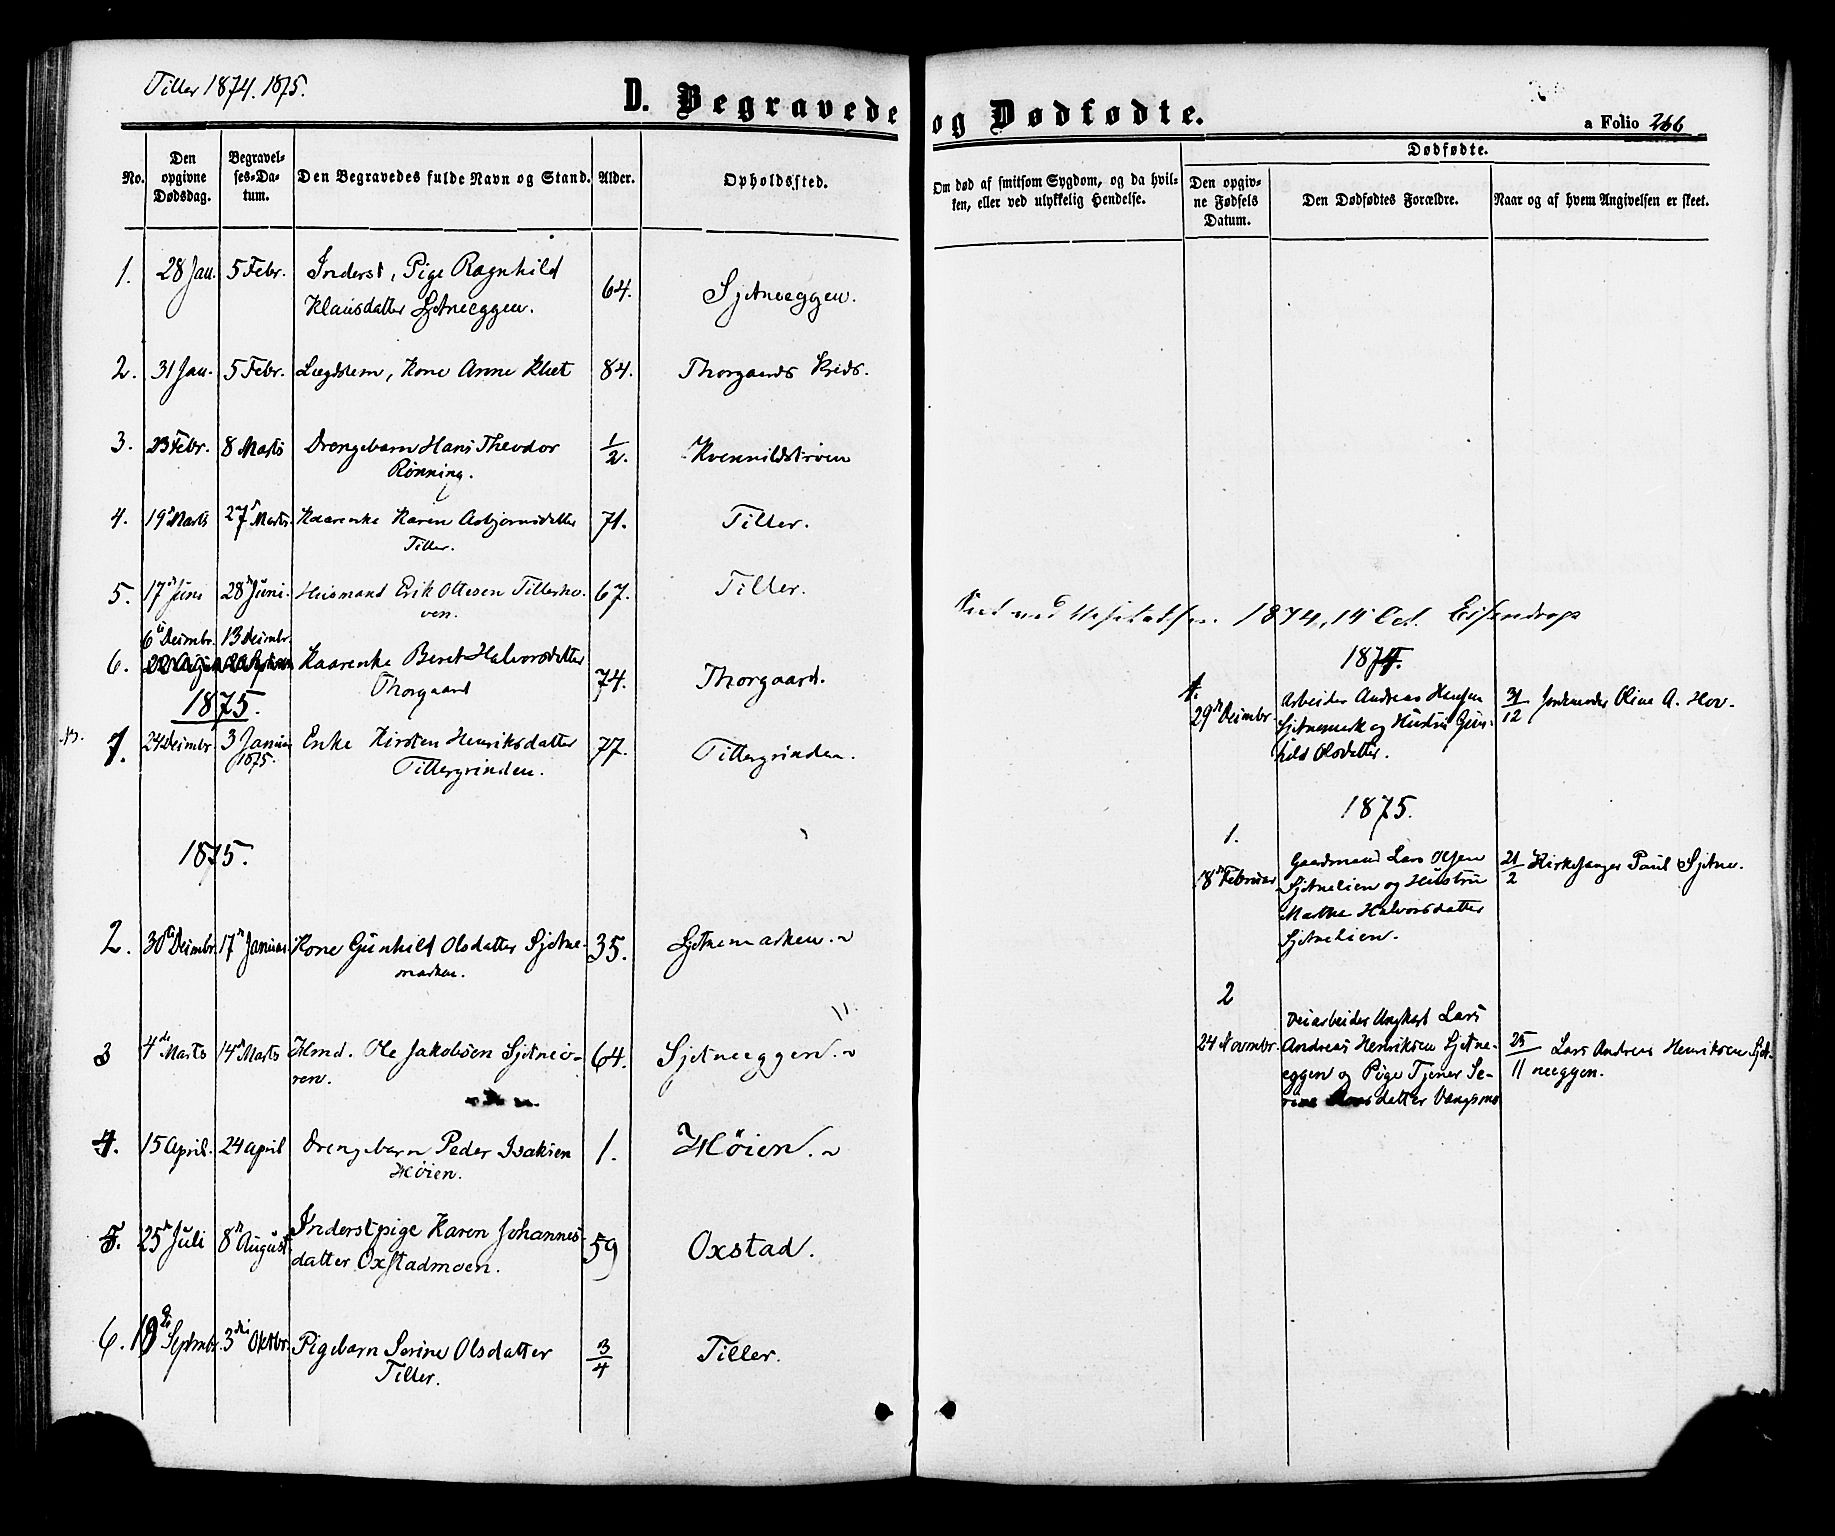 Tiller 1874. 1875.
D. Begravede og Dødfødte.
a Folio 266
No.
Den opgivne Dødsdag.
Begravelses-Datum.
Den Begravedes fulde Navn og Stand.
Alder.
Opholdssted.
Om død af smitsom Sygdom, og da hvilken, eller ved ulykkelig Hendelse.
Dødfødte.
Den opgivne Fødsels Datum.
Den Dødfødtes Forældre.
Naar og af hvem Angivelsen er skeet.
1. 28 Jan. 5 Febr. Inderst, Pige Ragnhild 64. Sjetneeggen.
Klausdatter Sjetneeggen.
2. 31 Jan. 5 Febr. Lægdslem, Kone Anne Klæt 84. Thorgaards Kreds.
3. 23 Febr. 8 Marts Drengebarn Hans Theodor 1/2. Kvennildstrøen
Rønning.
4. 19 Marts 27 Marts Kaarenke Karen Asbjørnsdatter 71. Tiller.
Tiller.
5. 17 Juni 28 Juni. Husmand Erik Ottesen Tillerho- 67. Tiller.
ven.
1874, 14 Oct.
6. 6 Decmbr. 13 Decmbr. Kaarenke Beret Halvorsdatter 74. Thorgaard.
Thorgaard
1875.
7. 24 Decmbr. 3 Januar 1875. Enke Kirsten Henriksdatter 77. Tillergrinden.
Tillergrinden.
1875.
2. 30 Decmbr. 17 Januar Kone Gunhild Olsdatter Sjetne- 35. Sjetnemarken.
marken.
3 4de Marts 14 Marts Hmd. Ole Jakobsen Sjetneø- 64. Sjetneeggen.
ren.
4. 15 April. 24 April Drengebarn Peder Isaksen 1. Høien.
Høien.
5. 25 Juli 8 August Inderstpige Karen Johannes- 59 Oxstad.
datter Oxstadmoen.
6. Septmbr. 3die Oktbr. Pigebarn Serine Olsdatter 3/4 Tiller.
Tiller.
1874.
1.
29 Decmbr. Arbeider Andreas Hansen 31/12 Jordemoder Oline A. Hov.
Sjetnemark og Hustru Gun-
hild Olsdatter.
1875.
1.
18 Februar Gaardmand Lars Olsen 21/2 Kirkesanger Paul Sjetne.
Sjetnelien og Hustru
Marthe Halvorsdatter
Sjetnelien.
2
24 Novmbr. Veiarbeider Ungkarl Lars 25/11 Lars Andreas Henriksen Sjet-
Andreas Henriksen Sjetne- neeggen.
eggen og Pige Tjener Se-
rine datter Vangsmo